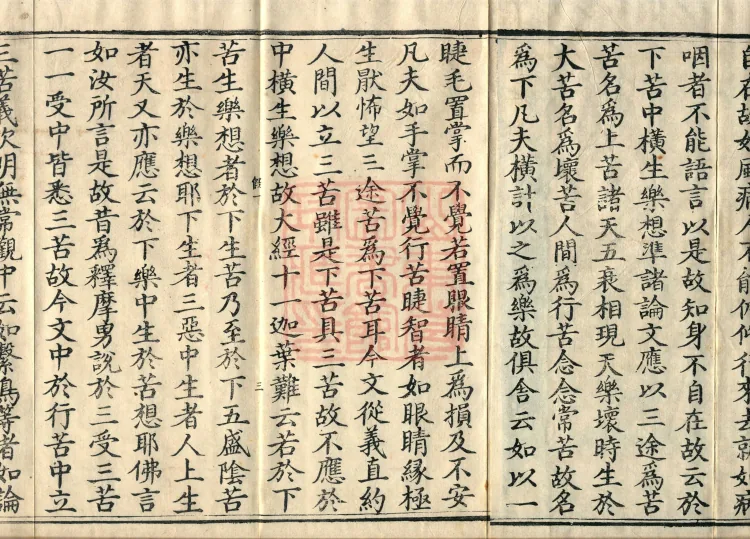 自在故如風病人不能俯仰行來去就如病
咽者不能語言以是故知身不自在故云於
下苦中橫生樂想準諸論文應以三途為苦
苦名為上苦諸天五衰相現天樂壞時生於
大苦名爲壞苦人間爲行苦念念常苦故名
爲下凡夫橫計以之爲樂故俱舍云如以一
睫毛置掌而不覺若置眼睛上爲損及不安
凡夫如手掌不覺行苦睫智者如眼睛緣極
生猒怖望三途苦爲下苦耳今文從義直約
人間以立三苦雖是下苦具三苦故不應於
中橫生樂想故大經十一迦葉難云若於下
三
苦生樂想者於下生苦乃至於下五盛陰苦
亦生於樂想耶下生者三惡中生者人上生
者天又亦應云於下樂中生於苦想耶佛言
如汝所言是故昔爲釋摩勇說於三受三苦
一一受中皆悉三苦故今文中於行苦中立
三苦義次明無常觀中云如繫鳥等者如論